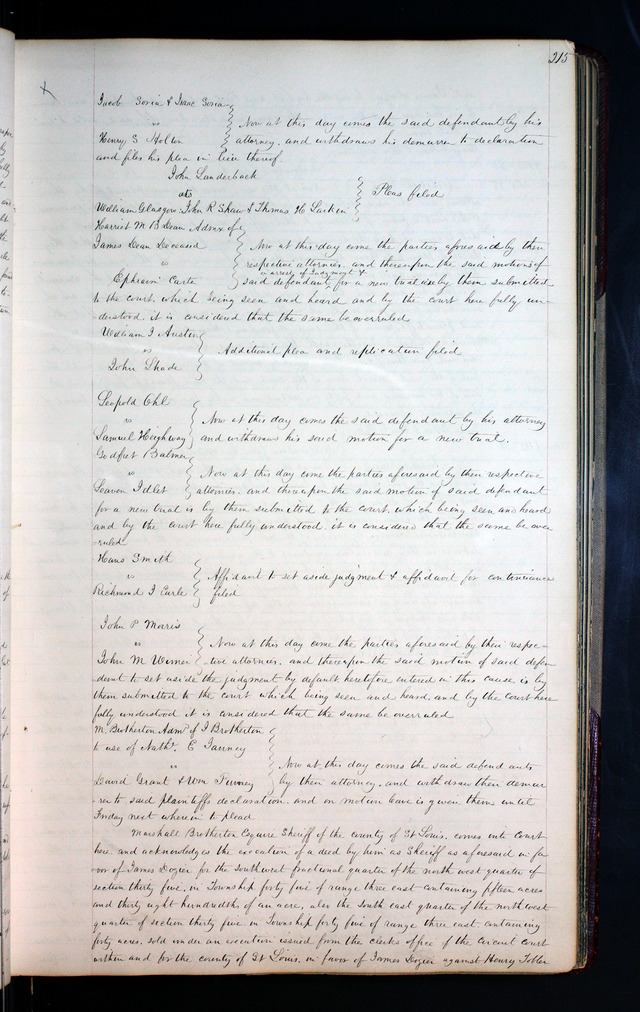 215
Jacob Soria & Isaac Soria
vs Now at this day comes the said defendant by his
Henry S Holton attorney, and withdraws his demurrer to declaration
and files his plea in lieu thereof.
John Lauderback
ats Pleas filed
William Glasgow John R Shaw & Thomas H Larkin
Harriet M B Dean Admx of
James Dean Deceased Now at this day come the parties aforesaid by their
vs respective attornies, and thereupon the said motions of
in arrest of Judgment &
Ephraim Carte said defendant for a new trial is by them submitted
to the court, which being seen and heard and by the court here fully un-
derstood, it is considered that the same be overruled
William I Austin
vs Additional plea and replication filed
John Shade
Leopold Ohl
vs Now at this day comes the said defendant by his attorney
Samuel Heighway and withdraws his said motion for a new trial.
Godfret Balmer
vs Now at this day come the parties aforesaid by their respective
Leaven Idlet attornies, and thereupon the said motion of said defendant
for a new trial is by them submitted to the court, which being seen and heard
and by the court here fully understood, it is considered that the same be over
ruled
Hans Smith
vs Affidavit to set aside judgment & affidavit for continuance
Richmond I Earle filed
John P Morris
vs Now at this day come the parties aforesaid by their respec-
John M Wimer tive attornies, and thereupon the said motion of said defen-
dant to set aside the judgment by default heretofore entered in this cause, is by
them submitted to the court which being seen and heard, and by the court here
fully understood it is considered that the same be overruled
M. Brotherton Admr of J Brotherton
to use of Nathl. E Janney
vs Now at this day comes the said defendants
David Grant & Wm Finney by their attorney, and withdraw their demur-
rer to said plaintiffs declaration, and on motion leave is given them until
Friday next wherein to plead
Marshall Brotherton Esquire Sheriff of the county of St Louis, comes into Court
here, and acknowledges the execution of a deed by him as Sheriff as aforesaid in fa
vor of James Dozier for the Southwest fractional quarter of the north west quarter of
section thirty five, in Township forty five of range three east containing fifteen acres
and thirty eight hundredths of an acre, also the South east quarter of the northwest
quarter of section thirty five in Township forty five of range three east, containing
forty acres, sold under an execution issued from the clerks office of the circuit court
within and for the county of St Louis, in favor of James Dozier against Henry Tobler